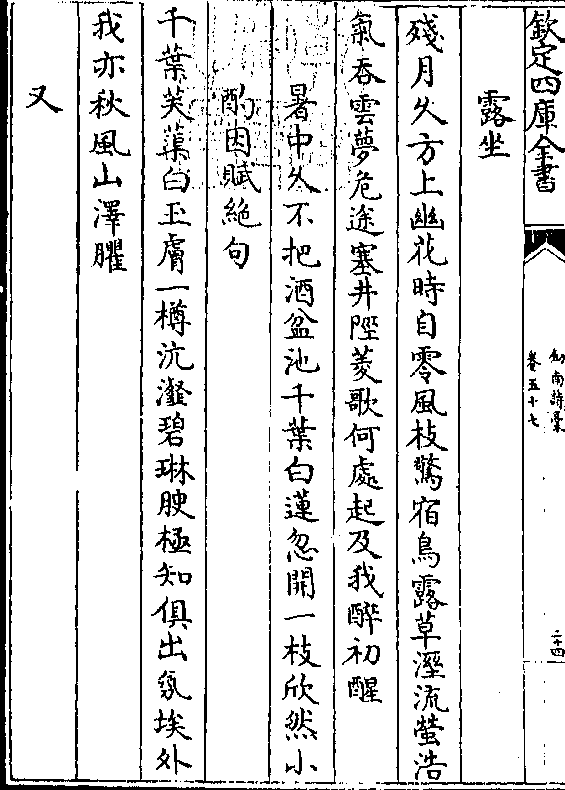 欽定四庫全書
劍南詩藁
卷五十七
二十四
露坐
殘月久方上幽花時自零風枝驚宿鳥露草溼流螢浩
氣吞雲夢危途塞井陘菱歌何處起及我醉初醒
暑中久不把酒盆池千葉白蓮忽開一枝欣然小
酌因賦絶句
千葉芙蕖白玉膚一樽沆瀣碧琳腴極知俱出氛埃外
我亦秋風山澤臞
又